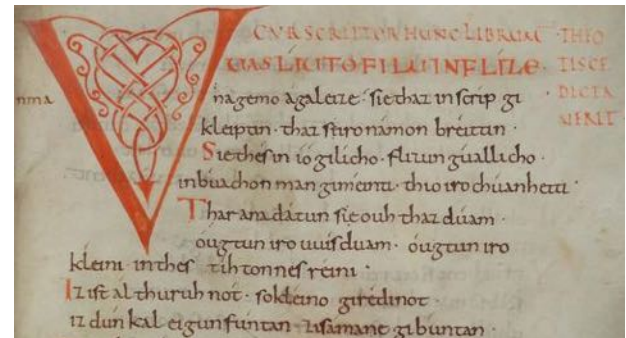 CVR SCRIPTOR HUNC LIBRUM · THEO
VUAS LIUTO FILU INFLIZE · TISCE
inma nagemo agaleize · sie thaz in scrip gi DICTA
kleiptin · thaz siro namon breittin · UERIT
Sie thes in io gilicho · flizun guallicho ·
in buachon man gimeinti · thio iro chuanheiti ·
Thar ana datun sie ouh thaz duam ·
ougtun iro uuisduam · ougtun iro
kleini · in thes tihtonnes reini ·
Iz ist al thuruh not · so kleino giredinot
iz dunkal eigun funtan · zisamane gibuntan ·